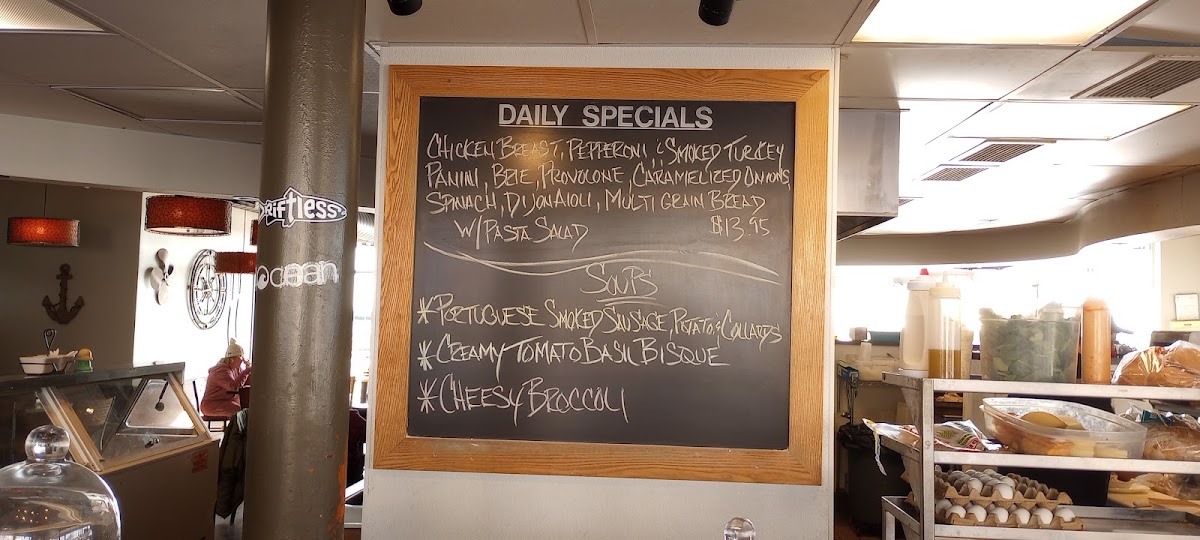 DAILY SPECIALS
CHICKEN BREAST, PEPPERONI, & SMOKED TURKEY
PANINI, BRIE, PROVOLONE, CARAMELIZED ONIONS,
SPINACH, DIJON AIOLI, MULTI GRAIN BREAD
W/ PASTA SALAD $13.95
SOUPS
* PORTUGUESE SMOKED SAUSAGE, POTATO & COLLARDS
* CREAMY TOMATO BASIL BISQUE
* CHEESY BROCCOLI
DRiftless
Ocean